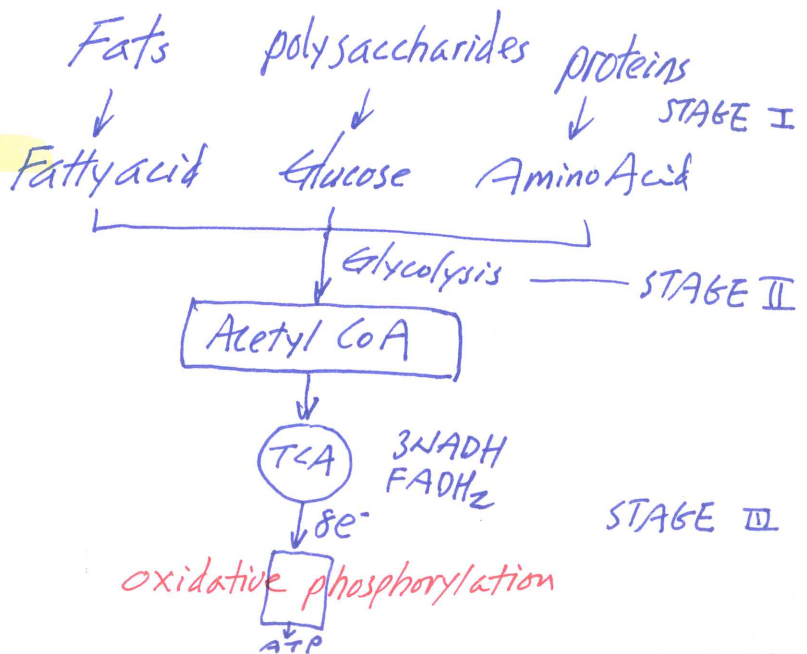 Fats polysaccharides proteins
STAGE I
Fatty acid Glucose Amino Acid
Glycolysis STAGE II
Acetyl CoA
TCA 3NADH
FADH₂
8e⁻ STAGE III
oxidative phosphorylation
ATP